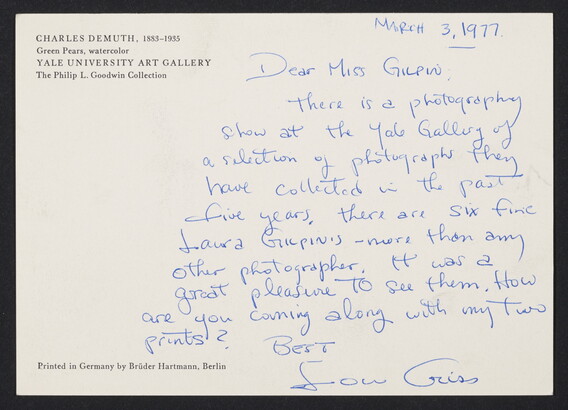 CHARLES DEMUTH, 1883–1935
Green Pears, watercolor
YALE UNIVERSITY ART GALLERY
The Philip L. Goodwin Collection
MARCH 3, 1977.
Dear Miss GILPIN;
There is a photography
show at the Yale Gallery of
a selection of photographs they
have collected in the past
five years. There are six fine
Laura GILPIN'S – more than any
other photographer. It was a
great pleasure to see them. How
are you coming along with my two
prints?
BEST
Printed in Germany by Brüder Hartmann, Berlin